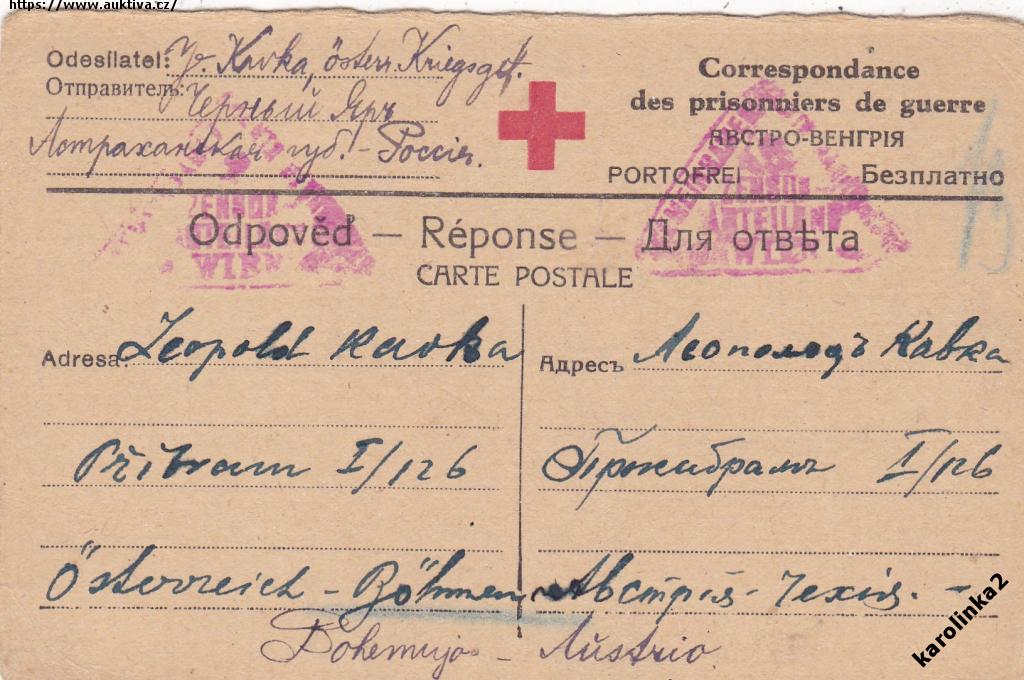 https://www.auktiva.cz/
Odesílatel: Kavka, österr. Kriegsgef.
Отправитель: Черный Яръ
Астраханская губ. - Россія.
Correspondance
des prisonniers de guerre
АВСТРО-ВЕНГРІЯ
PORTOFREI Безплатно
13
Odpověď — Réponse — Для отвѣта
CARTE POSTALE
ZENSUR
WIEN
ZENSUR
ABTEILUNG
WIEN
Adresa: Leopold Kavka
Příbram I/126
Österreich - Böhmen
Адресъ Леопольдъ Кавка
Пржибрамъ I/126
Австрія - Чехія. -
Bohemujo - Aŭstrio.
karolinka2